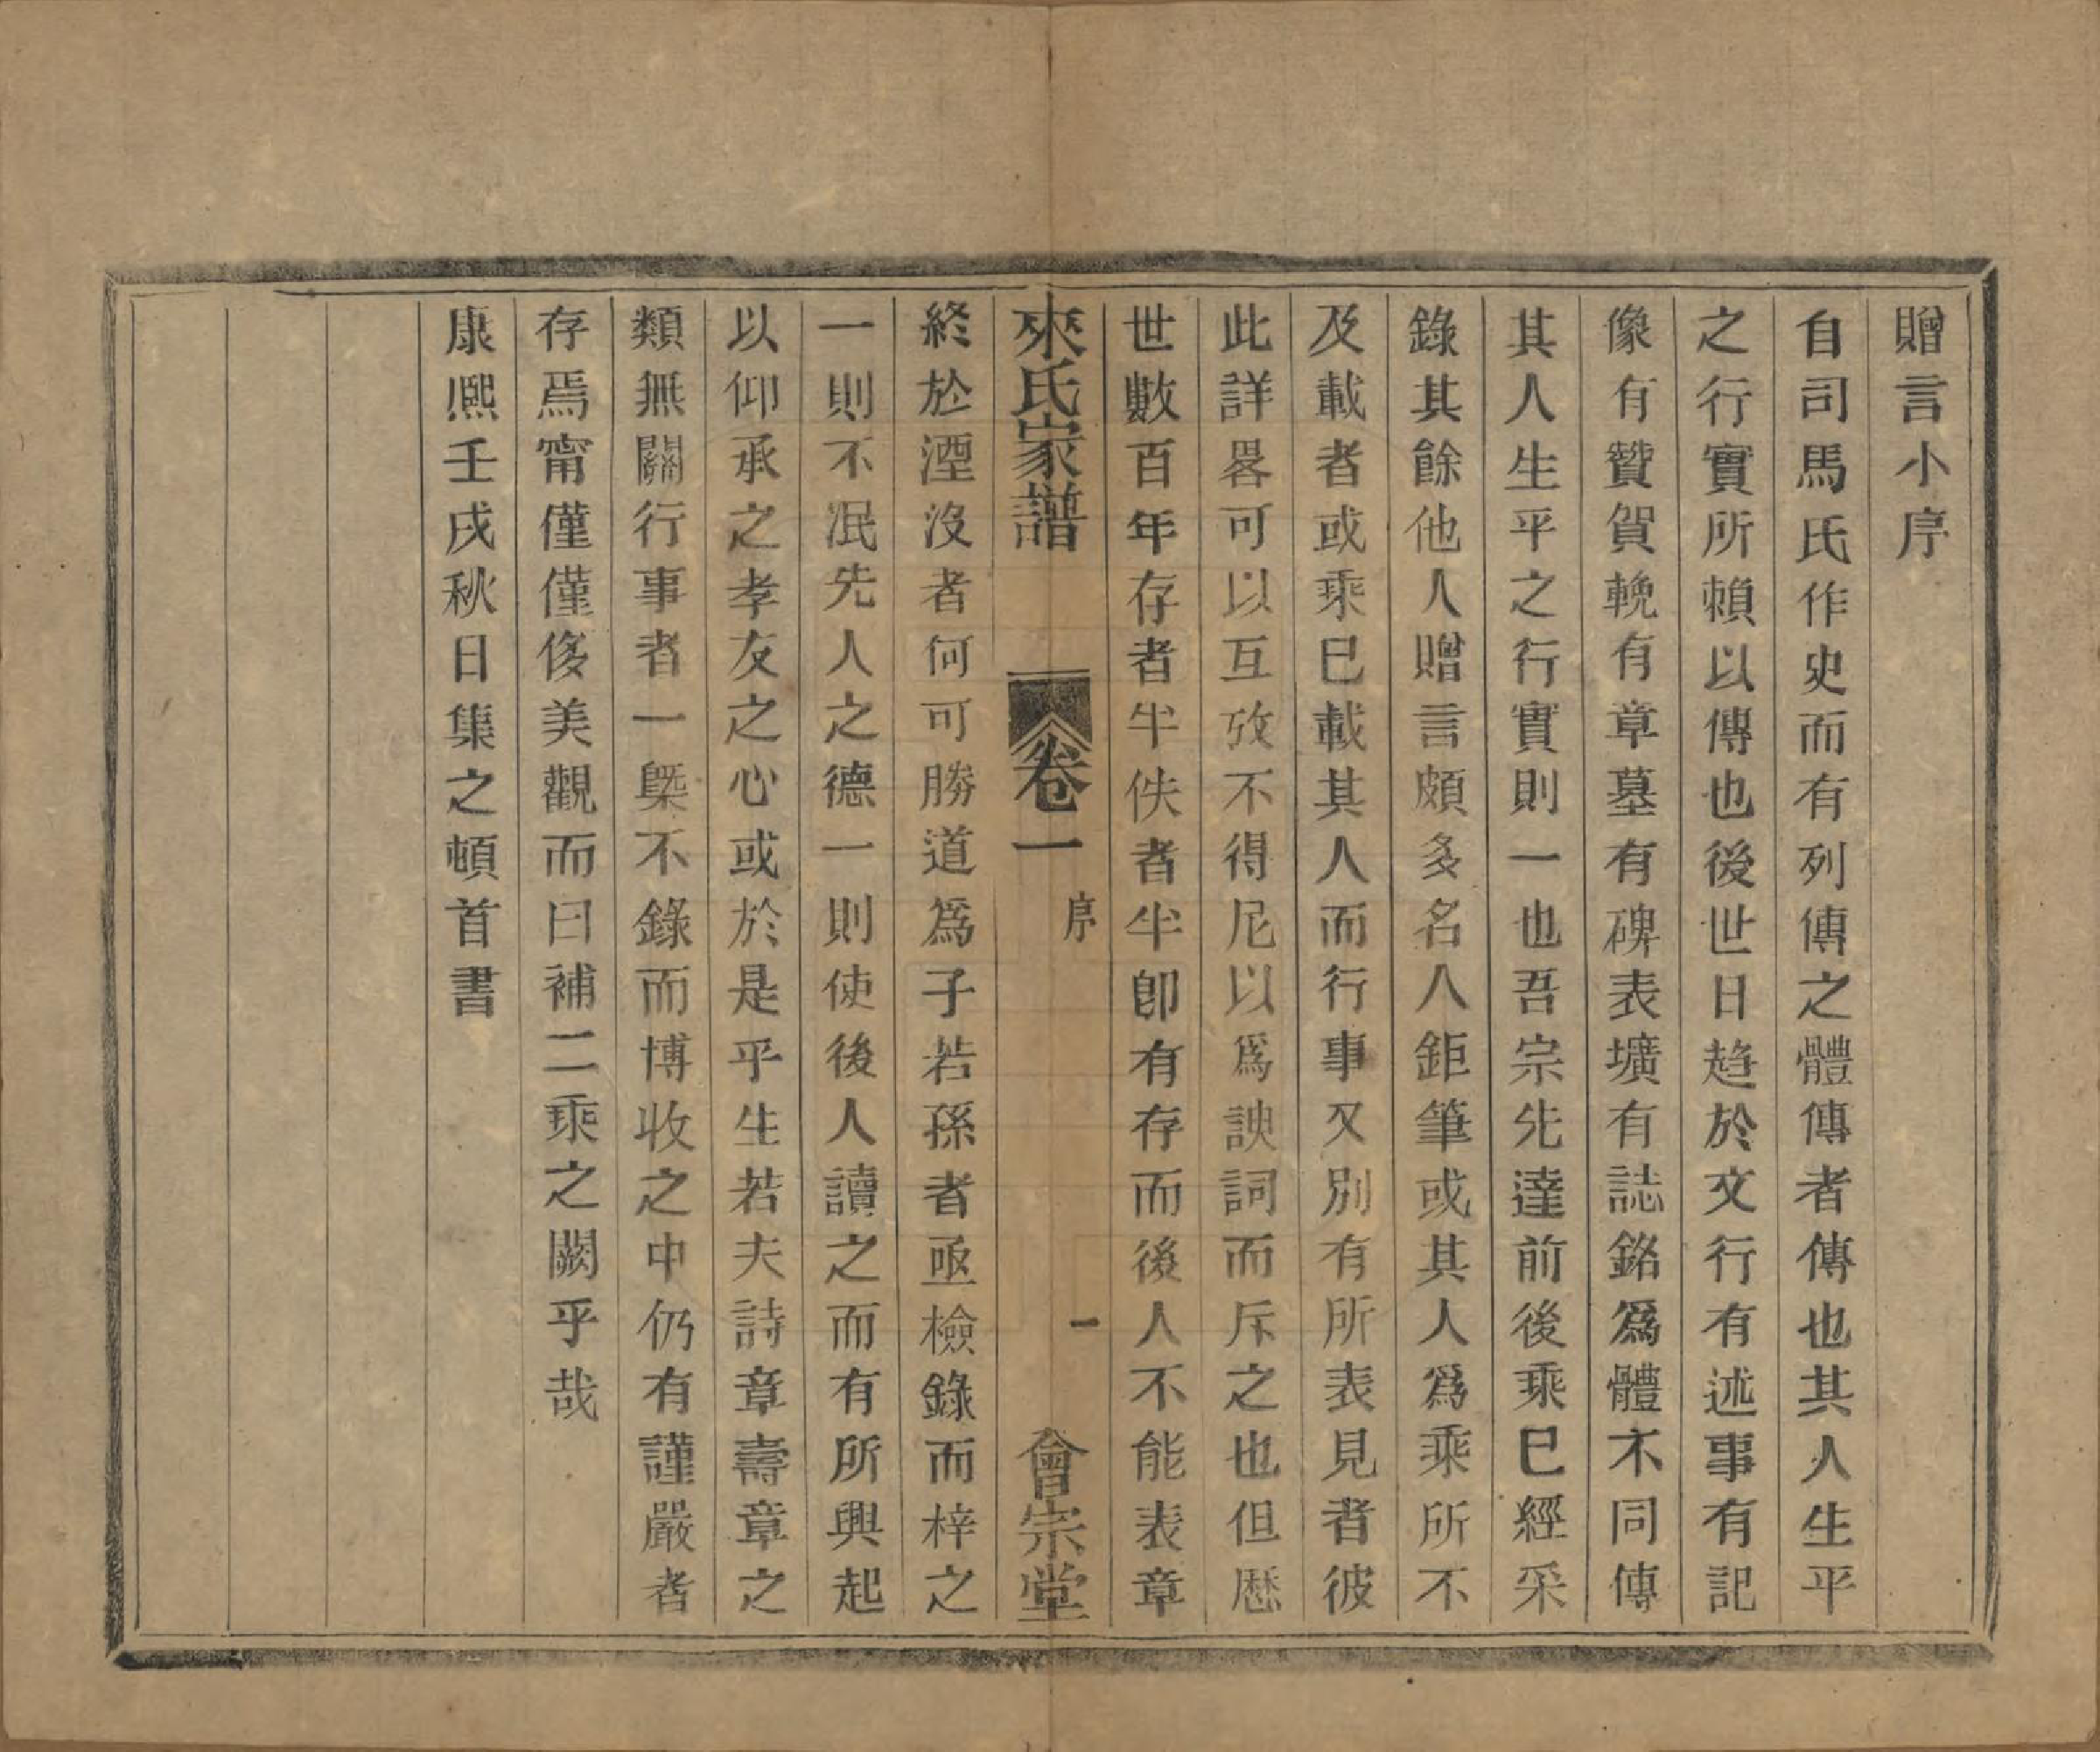 贈言小序
自司馬氏作史而有列傳之體傳者傳也其人生平
之行實所賴以傳也後世日趋於文行有述事有記
像有贊賀輓有章墓有碑表壙有誌銘爲體不同傳
其人生平之行實則一也吾宗先達前後乘已經采
錄其餘他人贈言頗多名人鉅筆或其人爲乘所不
及載者或乘已載其人而行事又別有所表見者彼
此詳畧可以互攷不得尼以爲諛詞而斥之也但歷
世數百年存者半佚者半卽有存而後人不能表章
來氏家譜
卷一
序
一
會宗堂
終於湮沒者何可勝道爲子若孫者亟檢錄而梓之
一則不泯先人之德一則使後人讀之而有所興起
以仰承之孝友之心或於是乎生若夫詩章壽章之
類無關行事者一槩不錄而博收之中仍有謹嚴者
存焉甯僅僅侈美觀而曰補二乘之闕乎哉
康熙壬戌秋日集之頓首書